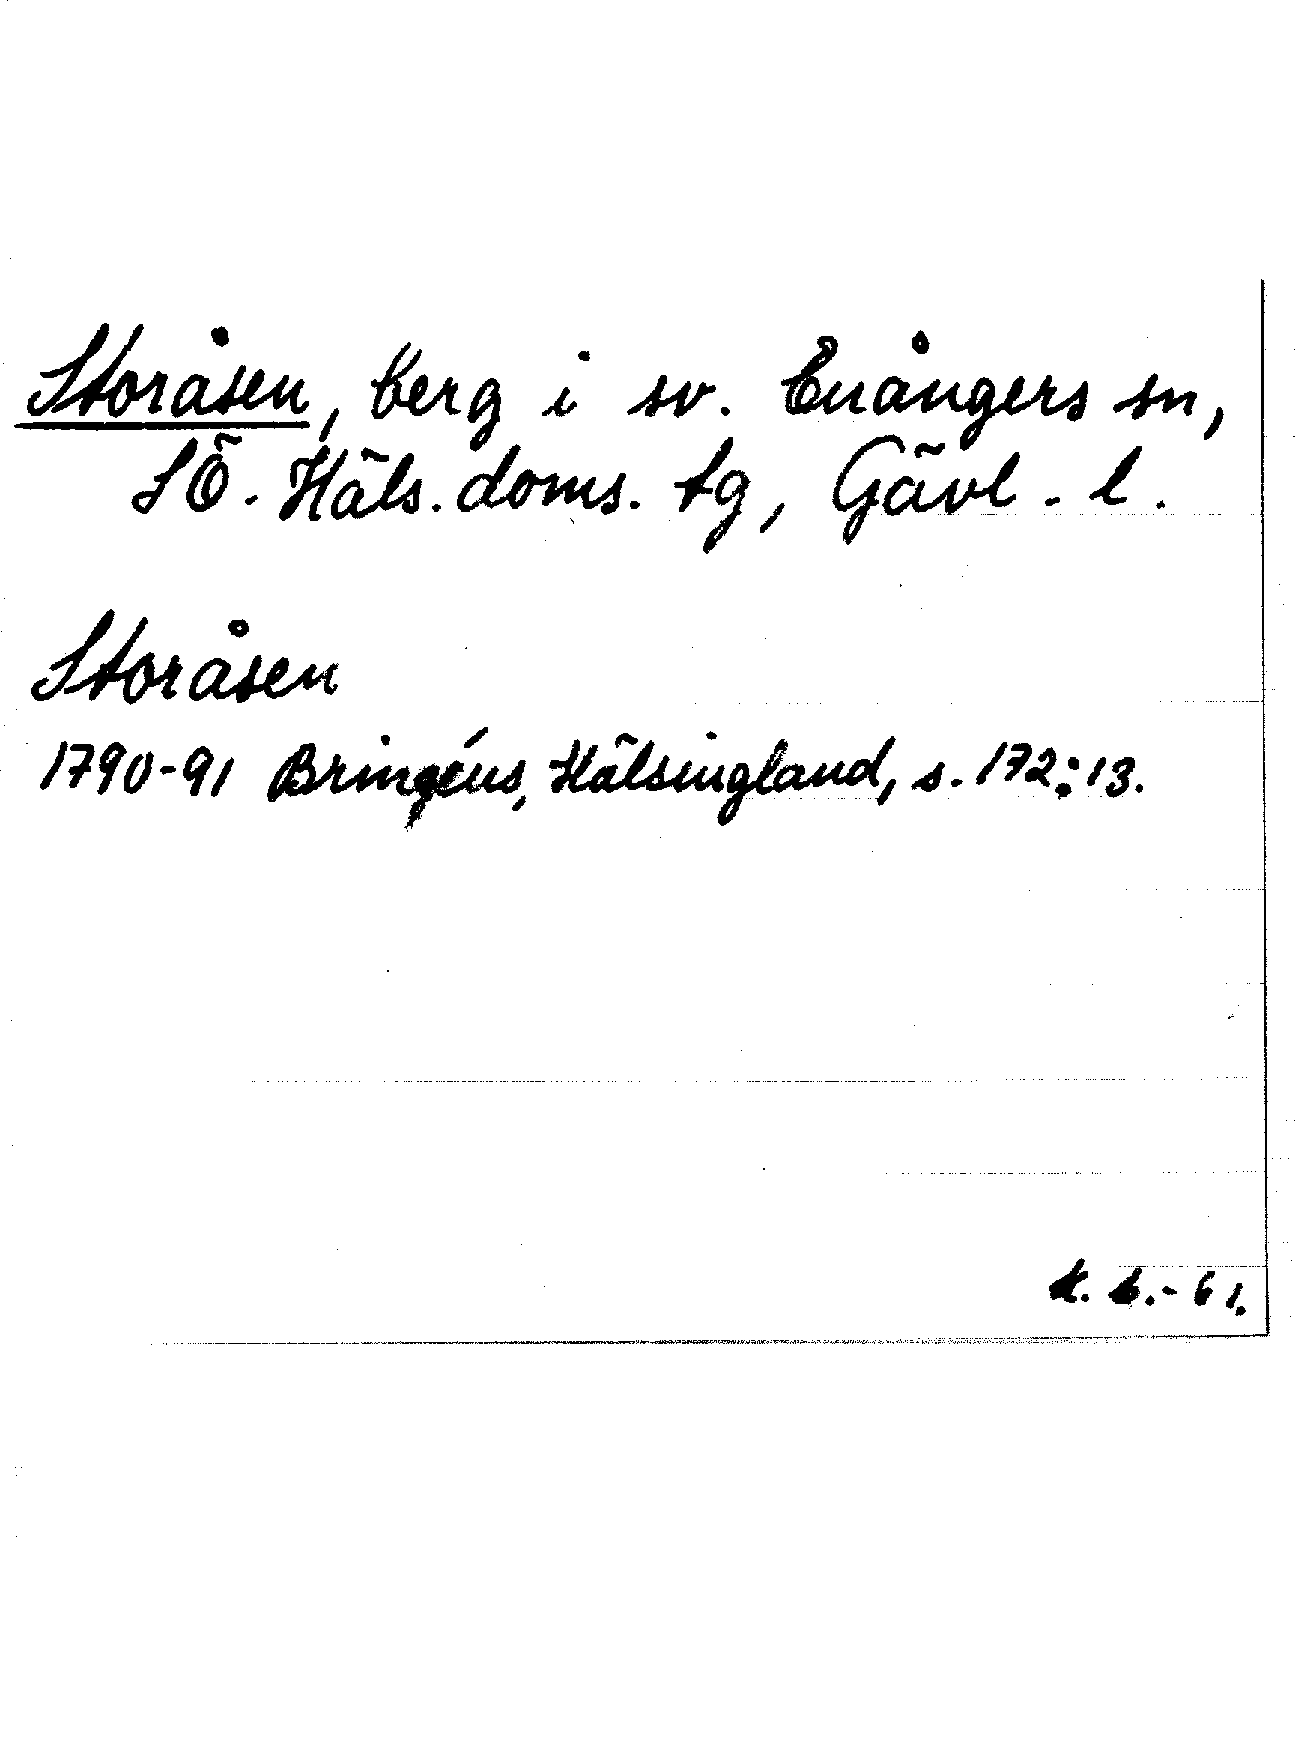 Storåsen, berg i sv. Enångers sn,
SÖ. Häls. doms. tg, Gävl. l.
Storåsen
1790-91 Bringéus, Hälsingland, s. 172:13.